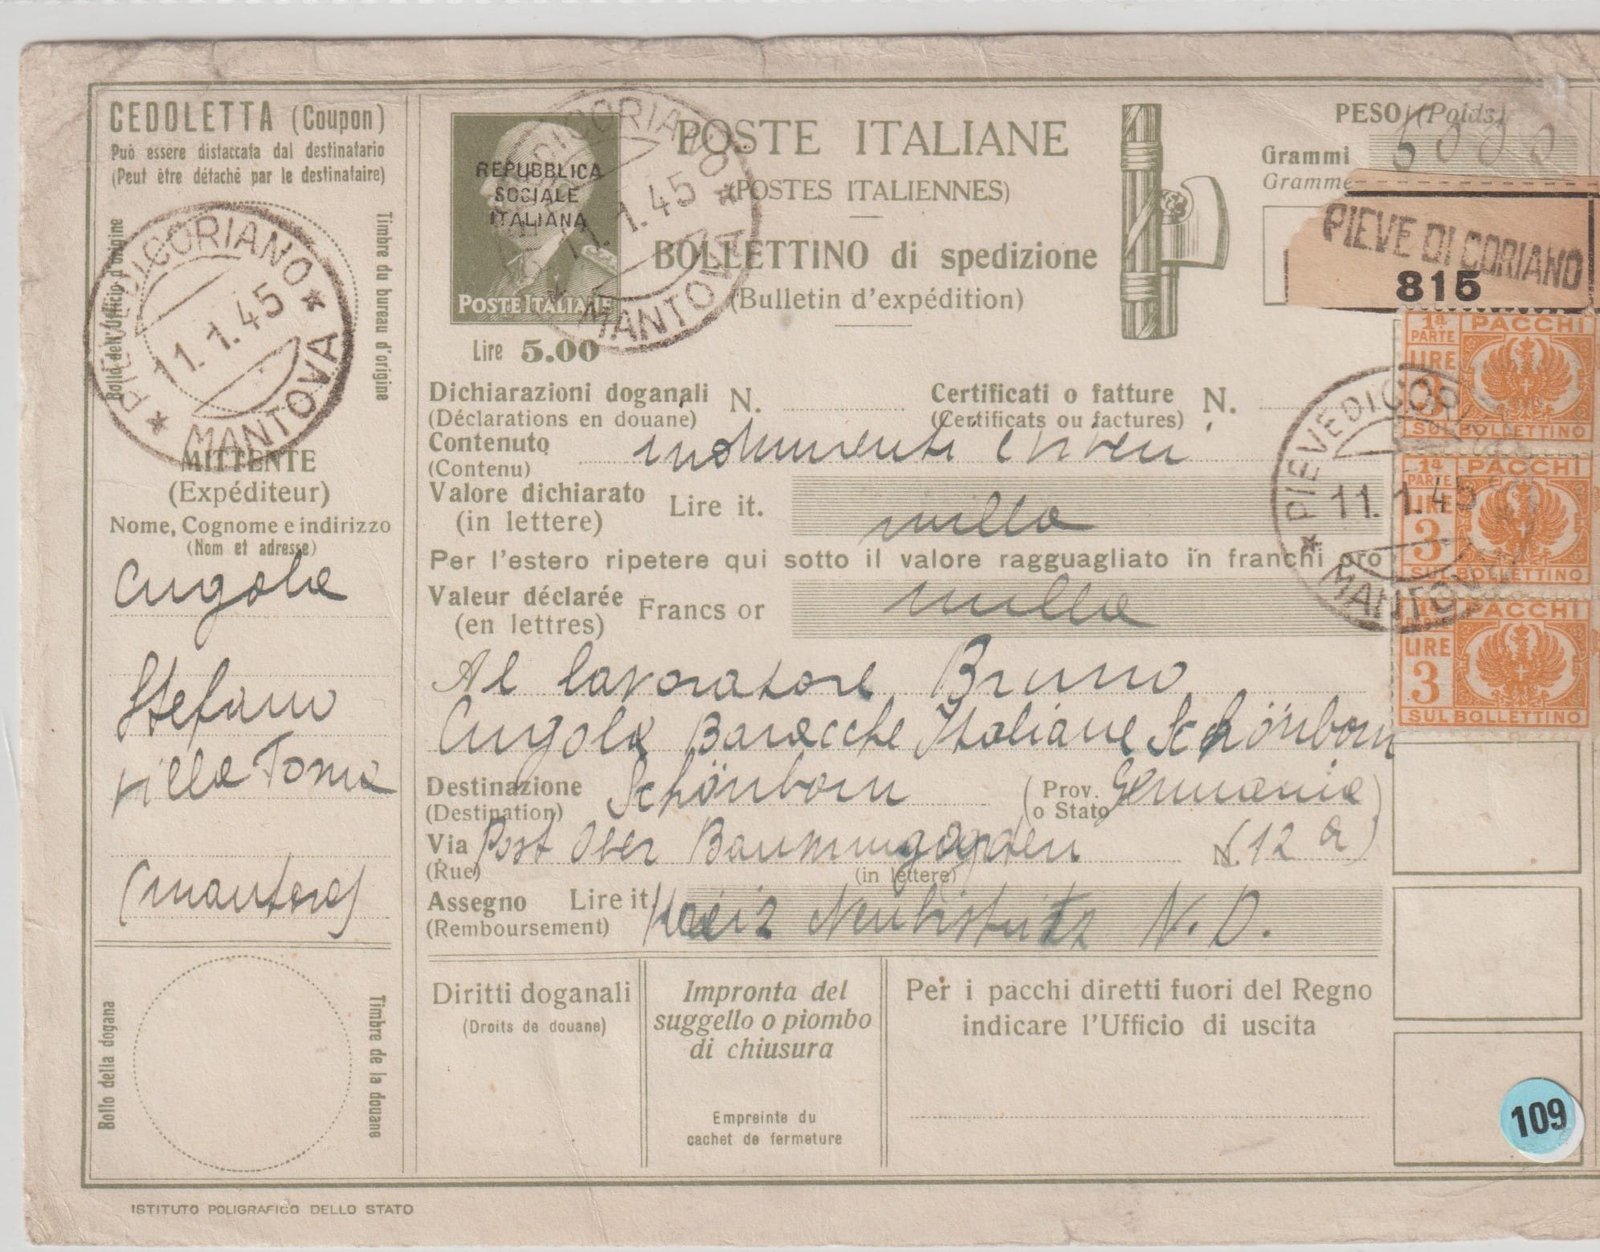 CEDOLETTA (Coupon)
Può essere distaccata dal destinatario
(Peut être détaché par le destinataire)
Bollo dell'Ufficio d'origine
Timbre du bureau d'origine
PIEVE DI CORIANO
11.1.45
* MANTOVA *
MITTENTE
(Expéditeur)
Nome, Cognome e indirizzo
(Nom et adresse)
Cugola
Stefano
(Mantova)
Bollo della dogana
Timbre de la douane
REPUBBLICA
SOCIALE
ITALIANA
POSTE ITALIANE
Lire 5.00
PIEVE DI CORIANO
11.1.45
* MANTOVA *
POSTE ITALIANE
(POSTES ITALIENNES)
BOLLETTINO di spedizione
(Bulletin d'expédition)
PESO (Poids)
Grammi
Gramme
5000
PIEVE DI CORIANO
815
Dichiarazioni doganali N.
(Déclarations en douane)
Certificati o fatture N.
(Certificats ou factures)
Contenuto
(Contenu)
indumenti e viveri
Valore dichiarato Lire it.
(in lettere)
mille
Per l'estero ripetere qui sotto il valore ragguagliato in franchi oro
Valeur déclarée Francs or
(en lettres)
mille
Al lavoratore Bruno
Cugola Baracche Italiane Schönborn
Destinazione Schönborn (Prov. Germania)
(Destination) o Stato
Via Post Ober N. (12 a)
(Rue)
(in lettere)
Assegno Lire it. N. D.
(Remboursement)
Diritti doganali
(Droits de douane)
Impronta del
suggello o piombo
di chiusura
Empreinte du
cachet de fermeture
Per i pacchi diretti fuori del Regno
indicare l'Ufficio di uscita
1ª PARTE PACCHI
LIRE
3
SUL BOLLETTINO
1ª PARTE PACCHI
LIRE
3
SUL BOLLETTINO
1ª PARTE PACCHI
LIRE
3
SUL BOLLETTINO
PIEVE DI CORIANO
11.1.45
* MANTOVA
109
ISTITUTO POLIGRAFICO DELLO STATO